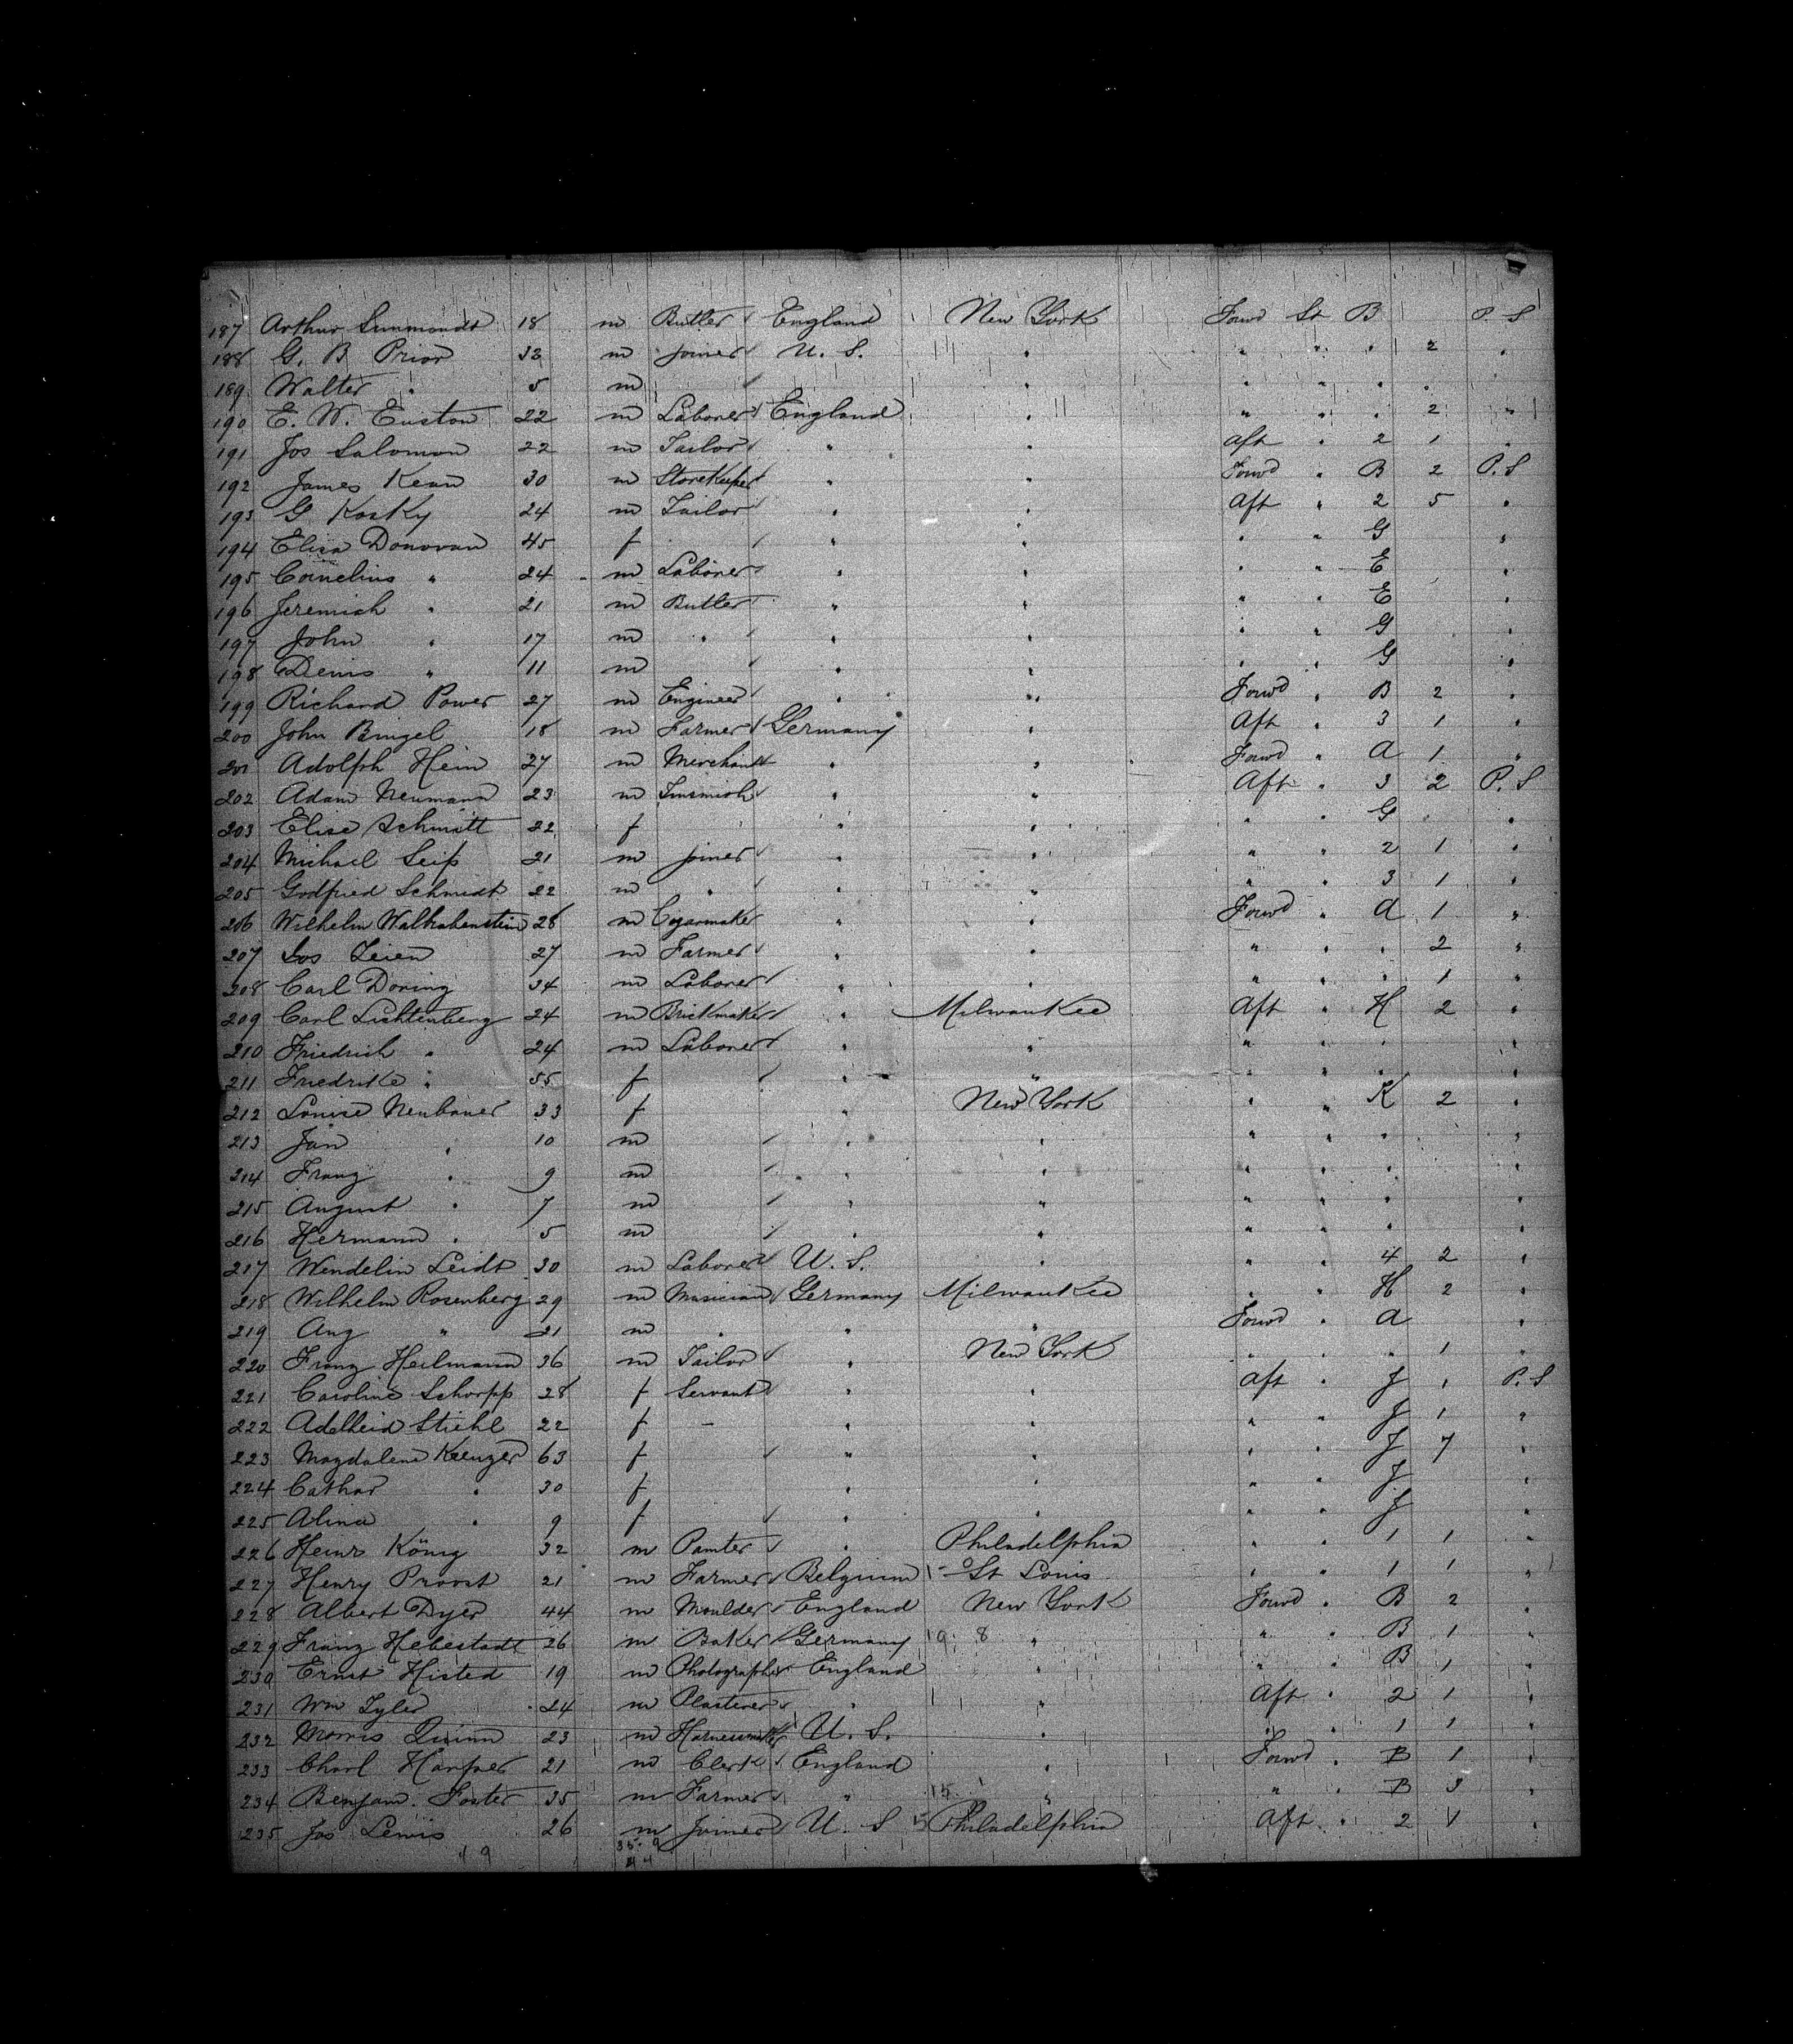 187 Arthur Simmondt 18 m Butler England New York Forwd St B P. S
188 G. B Prior 32 m Joiner U. S. " " " " 2 "
189 Walter " 5 m " " " " "
190 E. W. Euston 22 m Laborer England " " " " 2 "
191 Jos Salomon 22 m Tailor " " Aft " 2 1 "
192 James Kean 30 m Storekeeper " " Forwd " B 2 P. S
193 G Kosky 24 m Tailor " " Aft " 2 5 "
194 Eliza Donovan 45 f " " " " G "
195 Cornelius " 24 m Laborer " " " " E "
196 Jeremiah " 21 m Butler " " " " E "
197 John " 17 m " " " " " G "
198 Denis " 11 m " " " " G "
199 Richard Power 27 m Engineer " " Forwd " B 2 "
200 John Bingel 18 m Farmer Germany " Aft " 3 1 "
201 Adolph Hein 27 m Merchant " " Forwd " A 1 "
202 Adam Neumann 23 m " " Aft " 3 2 P. S
203 Elise Schmitt 22 f " " " " G "
204 Michael Seip 21 m Joiner " " " " 2 1 "
205 Godfried Schmidt 22 m " " " " " 3 1 "
206 Wilhelm Walkabenstein 28 m Cygarmaker " " Forwd " A 1 "
207 Jos Leien 27 m Farmer " " " " " 2 "
208 Carl Doring 34 m Laborer " " " " " 1 "
209 Carl Lichtenberg 24 m Brickmaker " Milwaukee Aft " H 2 "
210 Friedrich " 24 m Laborer " " " " " "
211 Friedrike " 55 f " " " " " "
212 Louise Neubauer 33 f " New York " " K 2 "
213 Jan " 10 m " " " " " "
214 Franz " 9 m " " " " " "
215 August " 7 m " " " " " "
216 Hermann " 5 m " " " " "
217 Wendelin Leidt 30 m Laborer U. S. " " " 4 2 "
218 Wilhelm Rosenberg 29 m Musician Germany Milwaukee " " H 2 "
219 Aug " 21 m " " " Forwd " A "
220 Franz Heilmann 36 m Tailor " New York " " " 1 "
221 Caroline Schorpp 28 f Servant " " Aft " J 1 P. S
222 Adelheid Stiehl 22 f - " " " " J 1 "
223 Magdalena Krenzer 63 f " " " " J 7 "
224 Cathar " 30 f " " " " J "
225 Alina " 9 f " " " " J "
226 Heinr König 32 m Painter " Philadelphia " " 1 1 "
227 Henry Proost 21 m Farmer Belgium St Louis " " 1 1 "
228 Albert Dyer 44 m Moulder England New York Forwd " B 2 "
229 Franz Hebestadt 26 m Baker Germany " " " B 1 "
230 Ernst Histed 19 m Photographer England " " " B 1 "
231 Wm Tyler 24 m Plasterer " " Aft " 2 1 "
232 Morris Quinn 23 m Harnessmaker U. S. " " " 1 1 "
233 Charl Harper 21 m Clerk England " Forwd " B 1 "
234 Benjam. Foster 35 m Farmer " " " " B 3 "
235 Jos Lewis 26 m Joiner U. S Philadelphia Aft " 2 1 "